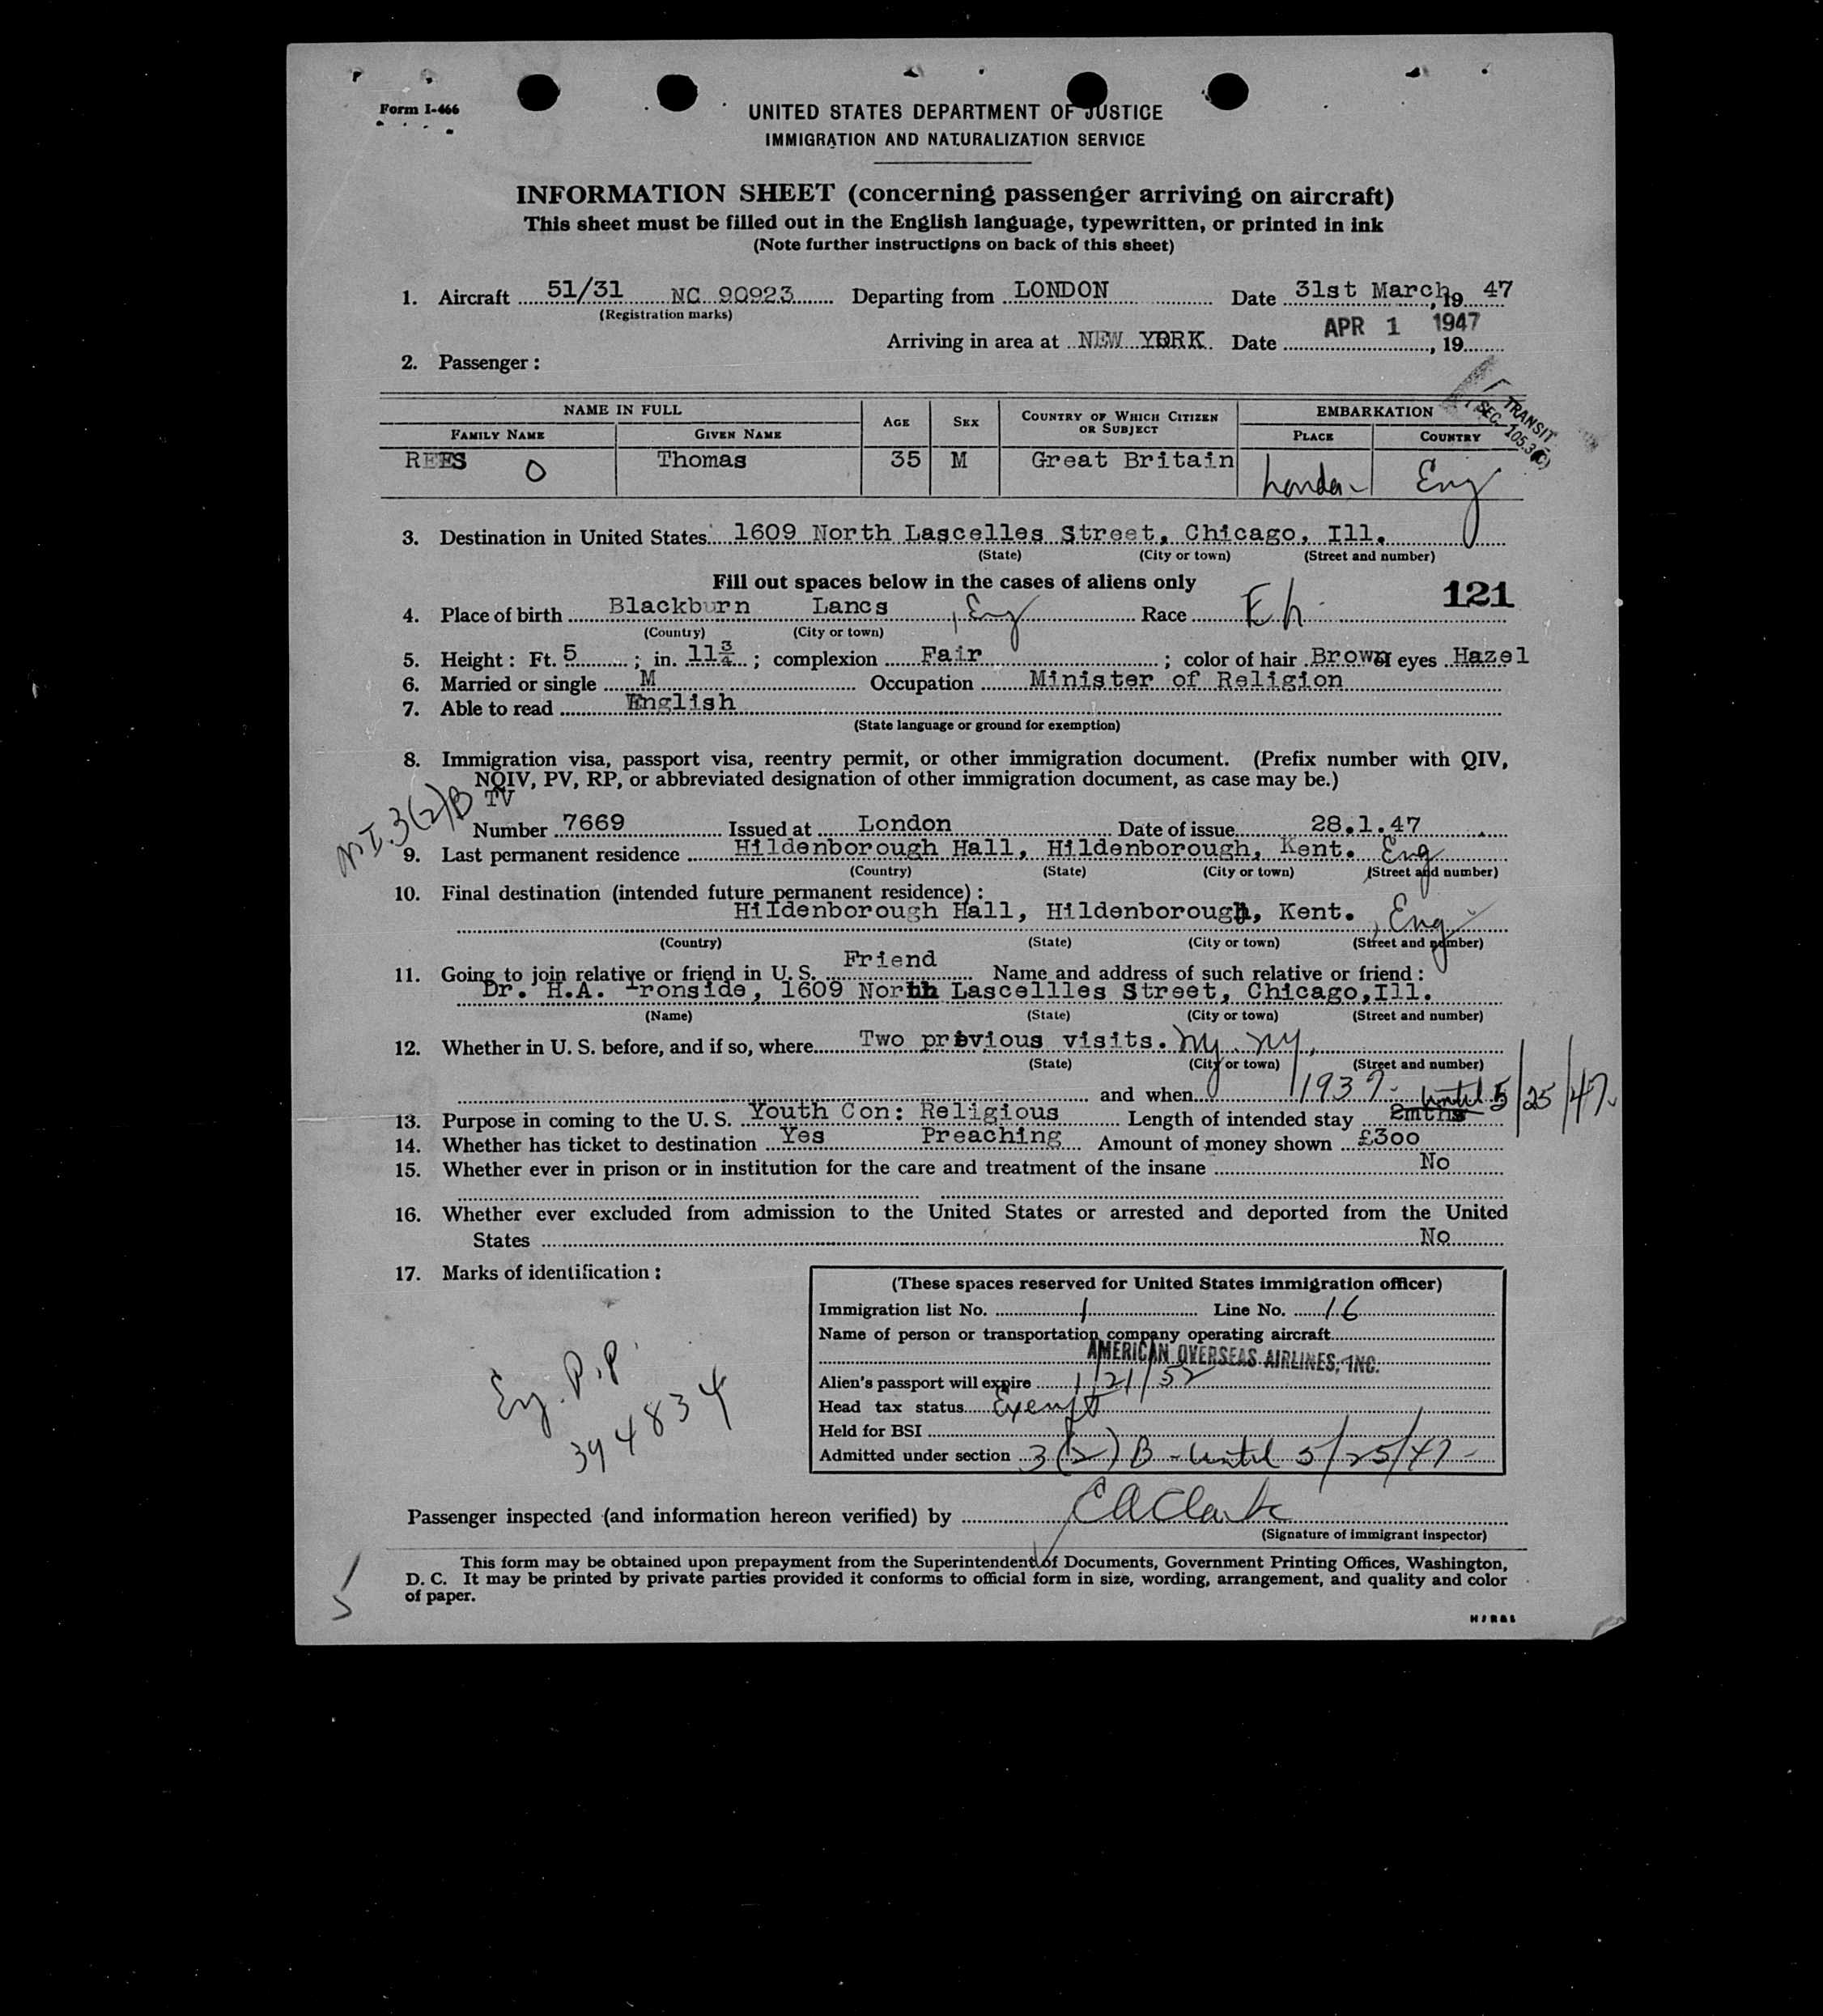 Form I-466
UNITED STATES DEPARTMENT OF JUSTICE
IMMIGRATION AND NATURALIZATION SERVICE
INFORMATION SHEET (concerning passenger arriving on aircraft)
This sheet must be filled out in the English language, typewritten, or printed in ink
(Note further instructions on back of this sheet)
1. Aircraft 51/31 NC 90923 Departing from LONDON Date 31st March, 19 47
(Registration marks)
APR 1 1947
Arriving in area at NEW YORK Date , 19
2. Passenger:
TRANSIT
NAME IN FULL AGE SEX COUNTRY OF WHICH CITIZEN OR SUBJECT EMBARKATION
SEC. 105.3
FAMILY NAME GIVEN NAME PLACE COUNTRY
REES O Thomas 35 M Great Britain London Eng
3. Destination in United States 1609 North Lascelles Street, Chicago, Ill.
(State) (City or town) (Street and number)
Fill out spaces below in the cases of aliens only
121
4. Place of birth Blackburn Lancs , Eng Race
(Country) (City or town)
5. Height: Ft. 5 ; in. 11¾ ; complexion Fair ; color of hair Brown of eyes Hazel
6. Married or single M Occupation Minister of Religion
7. Able to read English
(State language or ground for exemption)
8. Immigration visa, passport visa, reentry permit, or other immigration document. (Prefix number with QIV,
NQIV, PV, RP, or abbreviated designation of other immigration document, as case may be.)
3(2)B TV
Number 7669 Issued at London Date of issue 28.1.47
9. Last permanent residence Hildenborough Hall, Hildenborough, Kent. Eng
(Country) (State) (City or town) (Street and number)
10. Final destination (intended future permanent residence):
Hildenborough Hall, Hildenborough, Kent. , Eng
(Country) (State) (City or town) (Street and number)
11. Going to join relative or friend in U. S. Friend Name and address of such relative or friend:
Dr. H.A. Ironside, 1609 North Lascellles Street, Chicago,Ill.
(Name) (State) (City or town) (Street and number)
12. Whether in U. S. before, and if so, where Two previous visits. NY. NY,
(State) (City or town) (Street and number)
and when 1937 until 5/25/47
13. Purpose in coming to the U. S. Youth Con: Religious Length of intended stay 2mths
14. Whether has ticket to destination Yes Preaching Amount of money shown £300
15. Whether ever in prison or in institution for the care and treatment of the insane No
16. Whether ever excluded from admission to the United States or arrested and deported from the United
States No
17. Marks of identification:
Eng. P.P.
394834
(These spaces reserved for United States immigration officer)
Immigration list No. 1 Line No. 16
Name of person or transportation company operating aircraft
AMERICAN OVERSEAS AIRLINES, INC.
Alien's passport will expire 1/21/52
Head tax status Exempt
Held for BSI
Admitted under section 3(2)B - until 5/25/47 -
Passenger inspected (and information hereon verified) by E A Clark
(Signature of immigrant inspector)
This form may be obtained upon prepayment from the Superintendent of Documents, Government Printing Offices, Washington,
D. C. It may be printed by private parties provided it conforms to official form in size, wording, arrangement, and quality and color
of paper.